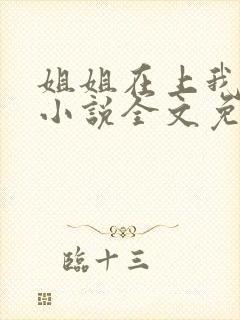 姐姐在上我
小说全文免
臨十三